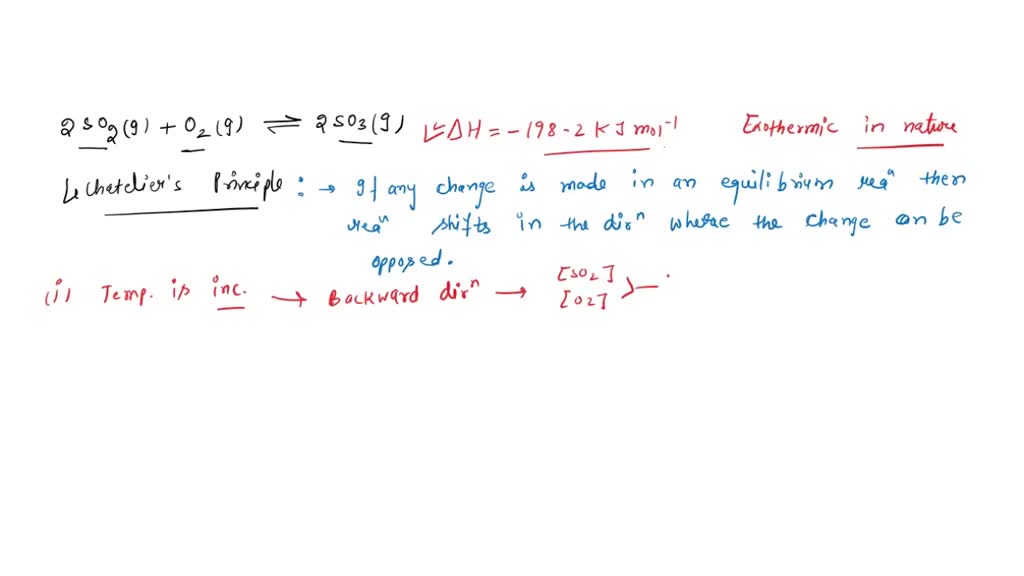 2SO2(g) + O2(g) ⇌ 2SO3(g) ΔH = -198.2 KJ mol⁻¹ Exothermic in nature
Le Chatelier's Principle : → If any change is made in an equilibrium reaⁿ then
reaⁿ shifts in the dirⁿ where the change can be
opposed.
(i) Temp. is inc. → Backward dirⁿ → [SO2]
[O2]